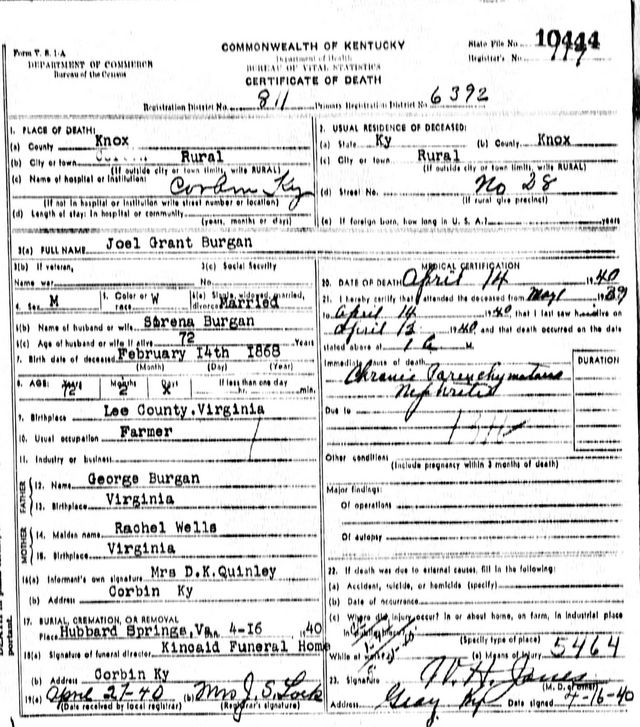 Form V. S. 1-A
DEPARTMENT OF COMMERCE
Bureau of the Census
COMMONWEALTH OF KENTUCKY
Department of Health
BUREAU OF VITAL STATISTICS
CERTIFICATE OF DEATH
State File No. 10444
Registrar's No.
Registration District No. 811 Primary Registration District No. 6392
1. PLACE OF DEATH:
(a) County Knox
(b) City or town Rural
(If outside city or town limits, write RURAL)
(c) Name of hospital or institution: Corbin Ky
(If not in hospital or institution write street number or location)
(d) Length of stay: In hospital or community
(years, months or days)
2. USUAL RESIDENCE OF DECEASED:
(a) State Ky (b) County Knox
(c) City or town Rural
(If outside city or town limits, write RURAL)
(d) Street No. No 28
(If rural give precinct)
(e) If foreign born, how long in U. S. A.? years
3(a) FULL NAME Joel Grant Burgan
3(b) If veteran,
Name war
3(c) Social Security
No.
4. Sex M 5. Color or W 6(a) married,
Married
6(b) Name of husband or wife Sarena Burgan
6(c) Age of husband or wife if alive 72 Years
7. Birth date of deceased February 14th 1868
(Month) (Day) (Year)
8. AGE: 72 2 X If less than one day
hr. min.
9. Birthplace Lee County, Virginia
10. Usual occupation Farmer
11. Industry or business
FATHER
12. Name George Burgan
13. Birthplace Virginia
MOTHER
14. Maiden name Rachel Wells
15. Birthplace Virginia
16(a) Informant's own signature Mrs D.K.Quinley
(b) Address Corbin Ky
17. BURIAL, CREMATION, OR REMOVAL
Place Hubbard Springs, Va. 4-16 1940
18(a) Signature of funeral director Kincaid Funeral Home
(b) Address Corbin Ky
19(a) April 27-40 (b) Mrs J. S. Lock
(Date received by local registrar) (Registrar's signature)
MEDICAL CERTIFICATION
20. DATE OF DEATH April 14 1940
21. I hereby certify that I attended the deceased from May 1 1939
to April 14 1940 that I last saw him alive on
April 12 1940 and that death occurred on the date
stated above at M.
Immediate cause of death
Chronic Parenchymatous
Nephritis
DURATION
Due to
Other conditions
(Include pregnancy within 3 months of death)
Major findings:
Of operations
Of autopsy
22. If death was due to external causes, fill in the following:
(a) Accident, suicide, or homicide (specify)
(b) Date of occurrence
(c) Where did injury occur? In or about home, on farm, in industrial place
(Specify type of place)
While at work? (e) Means of injury 5464
23. Signature W. H. Jones
(M. D. or other)
Address Gray Ky Date signed 4-16-40